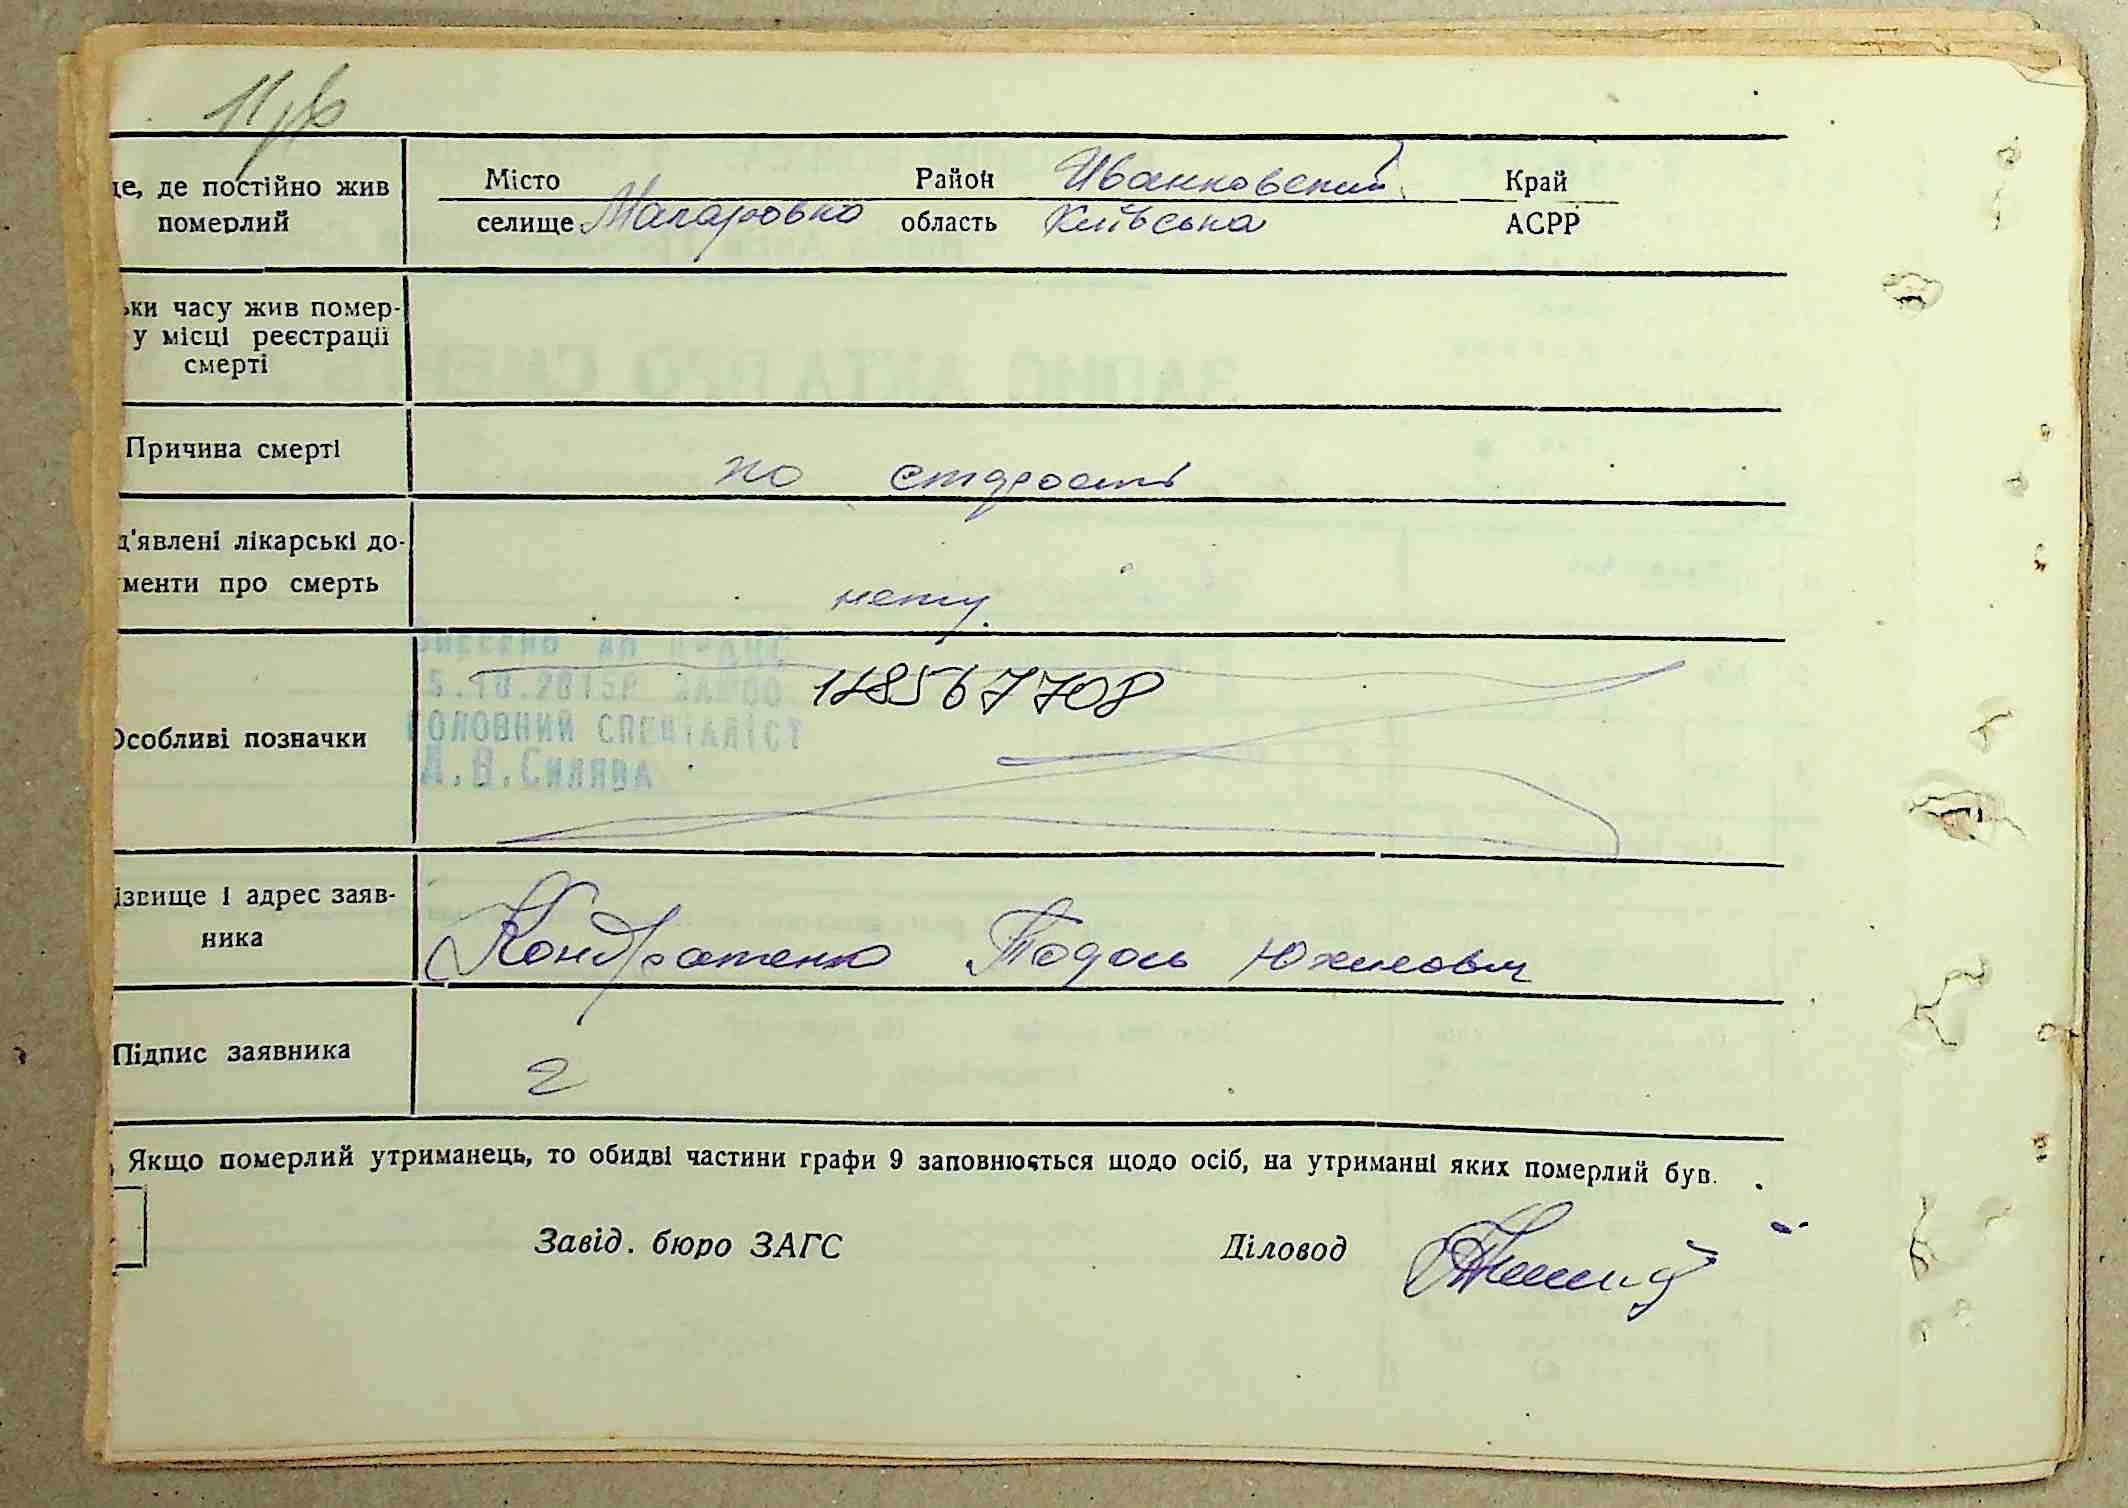 це, де постійно жив
померлий
Місто Район Иванковский Край
селище Макаровка область Київська АСРР
ьки часу жив помер-
у місці реєстрації
смерті
Причина смерті
по старості
д'явлені лікарські до-
ументи про смерть
нету
Особливі позначки
ВНЕСЕНО ДО ДРАЦС
5.10.2015Р.
ГОЛОВНИЙ СПЕЦІАЛІСТ
Д.В.Силява
ізвище і адрес заяв-
ника
Кондратенко Тодось Юхимович
Підпис заявника
Якщо померлий утриманець, то обидві частини графи 9 заповнюються щодо осіб, на утриманні яких померлий був.
Завід. бюро ЗАГС Діловод